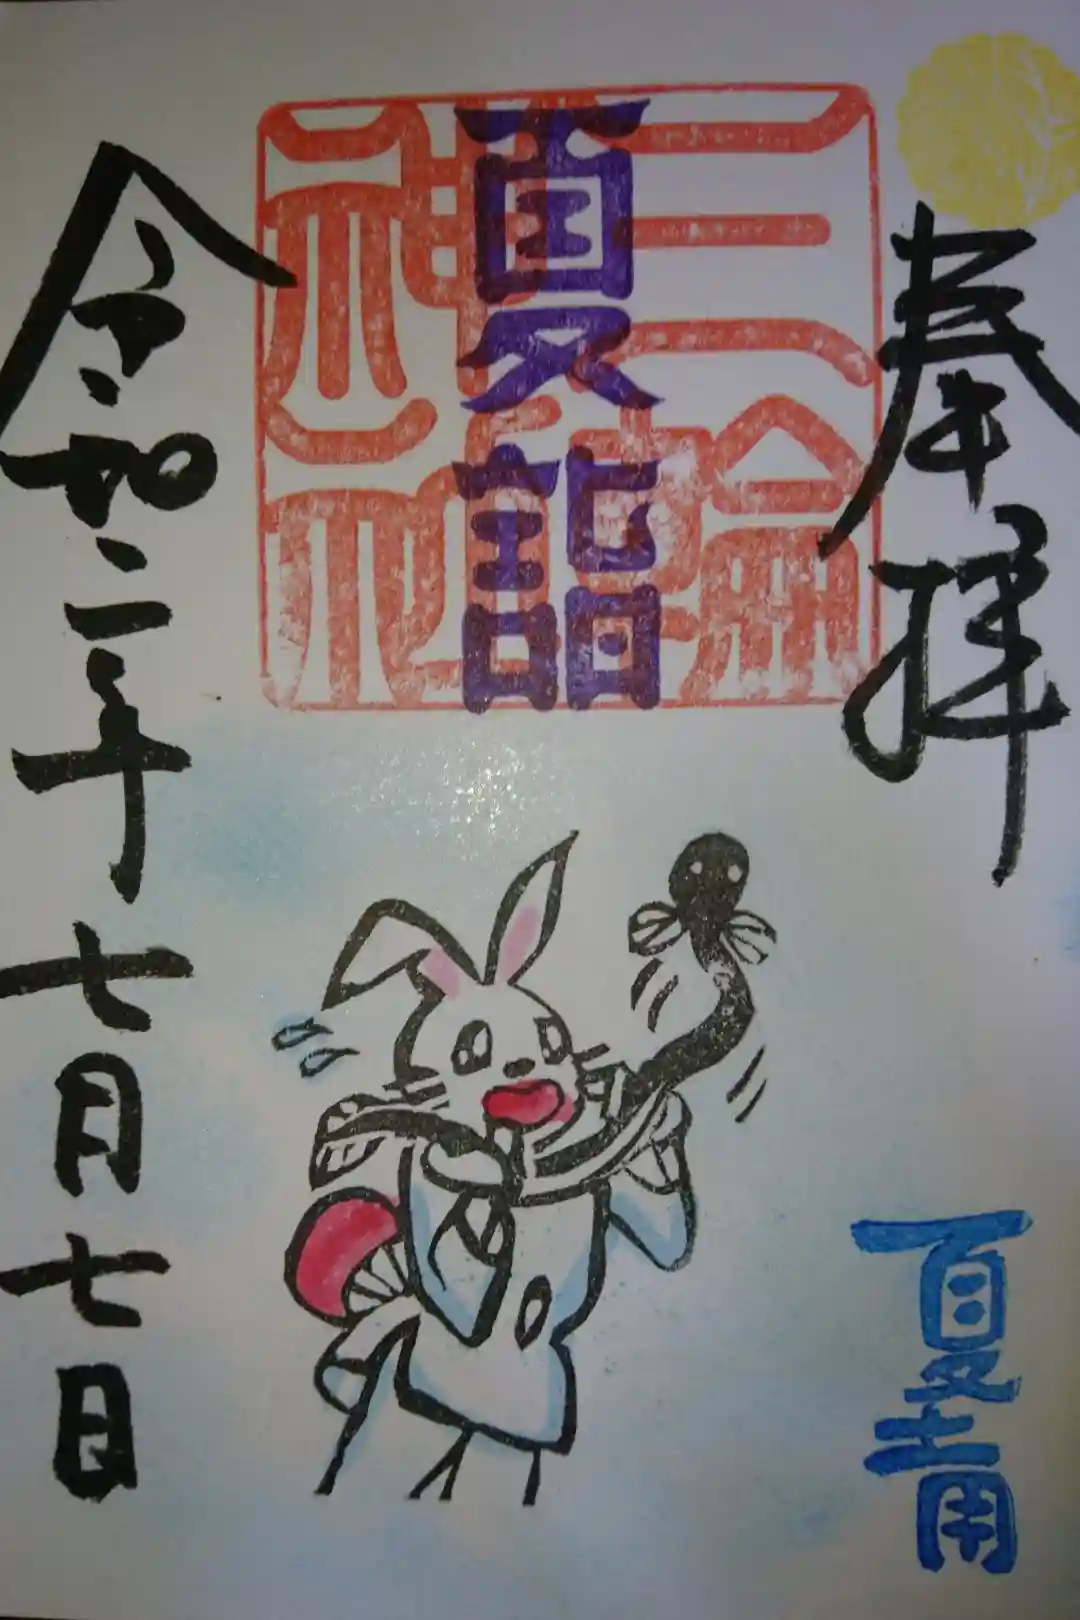 奉拝
夏土用
三輪神社
夏詣
令和二年七月七日